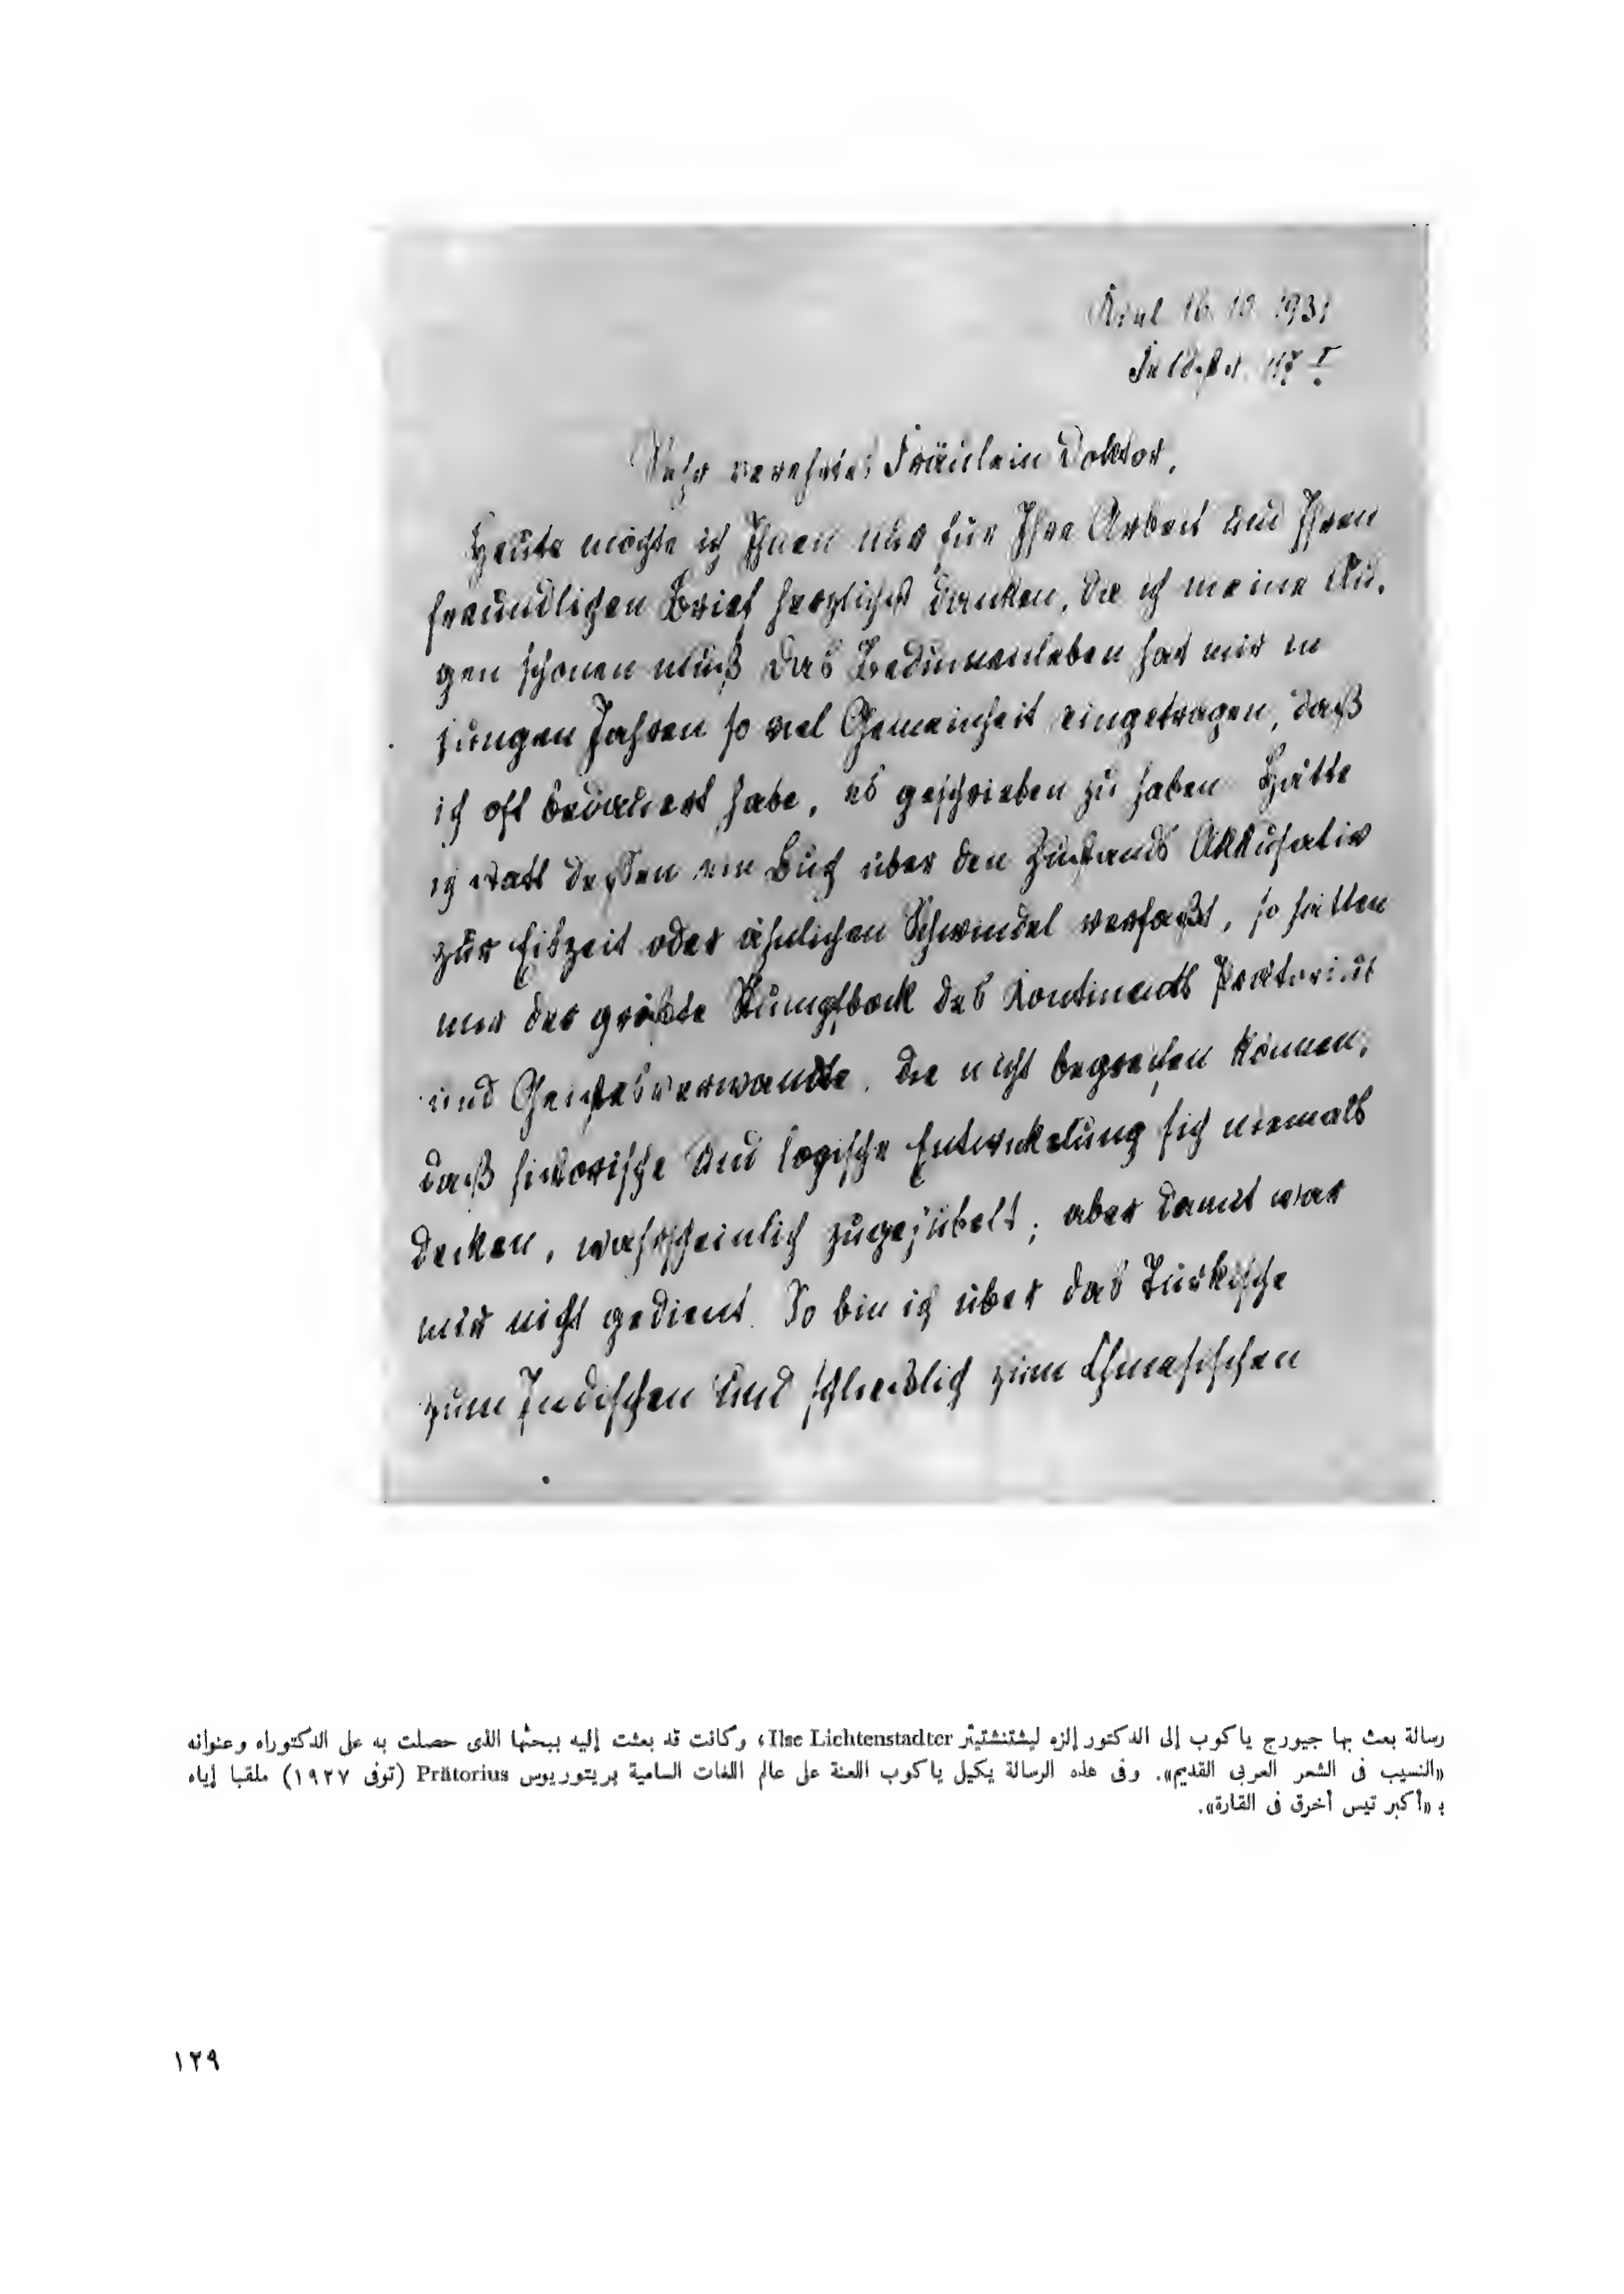 Kiel 16. 10. 1931
Feldstr. 117 I.
Sehr verehrtes Fräulein Doktor,
Heute möchte ich Ihnen nur für Ihre Arbeit und Ihren
freundlichen Brief herzlichst danken, da ich meine Au-
gen schonen muß. Das Beduinenleben hat mir in
jungen Jahren so viel Gemeinheit eingetragen, daß
ich oft bedauert habe, es geschrieben zu haben. Hätte
ich statt dessen ein Buch über den Zustands Akkusativ
zur Eiszeit oder ähnlichen Schwindel verfaßt, so hätten
mir der größte Stumpfbock des Kontinents Prätorius
und Geistesverwandte, die nicht begreifen können,
daß historische und logische Entwickelung sich niemals
decken, wahrscheinlich zugejubelt; aber damit war
mir nicht gedient. So bin ich über das Türkische
zum Indischen und schließlich zum Chinesischen
رسالة بعث بها جيورج ياكوب إلى الدكتور إلزه ليشتنشتيتر Ilse Lichtenstadter، وكانت قد بعثت إليه ببحثها الذى حصلت به على الدكتوراه وعنوانه
«النسيب فى الشعر العربى القديم». وفى هذه الرسالة يكيل ياكوب اللعنة على عالم اللغات السامية بريتوريوس Prätorius (توفى ١٩٢٧) ملقبا إياه
بـ «أكبر تيس أخرق فى القارة».
١٢٩